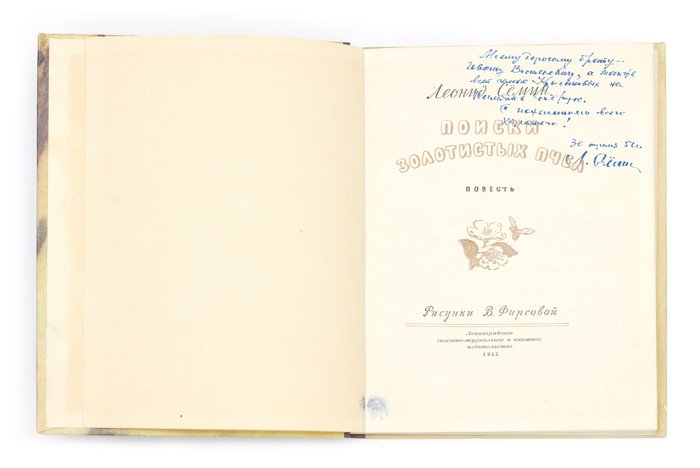 Моему дорогому брату —
Васильевичу, а также
всей семье на
С пожеланиями всего
хорошего!
30 апреля 56 г.
Л. Сёмин
Леонид Сёмин
ПОИСКИ
ЗОЛОТИСТЫХ ПЧЕЛ
ПОВЕСТЬ
Рисунки В. Фирсовой
Ленинградское
газетно-журнальное и книжное
издательство
1955